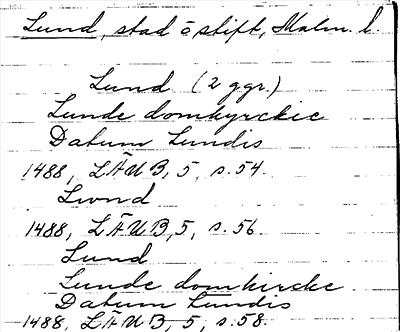 Lund, stad o stift, Malm. l.
Lund (2 ggr.)
Lunde domkyrckie
Datum Lundis
1488, LÄUB, 5, s. 54.
Lwnd
1488, LÄUB, 5, s. 56.
Lund
Lunde domkirske
Datum Lundis
1488, LÄUB, 5, s. 58.